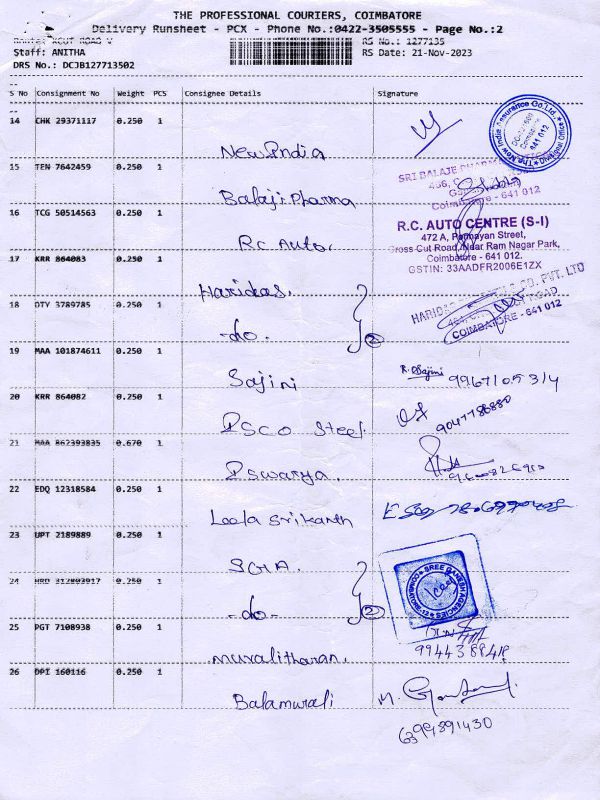 THE PROFESSIONAL COURIERS, COIMBATORE
Delivery Runsheet - PCX - Phone No.:0422-3505555 - Page No.:2
RS No.: 1277135
Staff: ANITHA
RS Date: 21-Nov-2023
DRS No.: DCJB127713502
S No Consignment No Weight PCS Consignee Details Signature
14 CHK 29371117 0.250 1
New India
The New India Assurance Co.Ltd. Divisional Office Coimbatore 641 012
15 TEN 7642459 0.250 1
Balaji Pharma
SRI BALAJE PHARMA
Coimbatore - 641 012
16 TCG 50514563 0.250 1
Rc Auto.
R.C. AUTO CENTRE (S-I)
472 A, Street,
Cross Cut Road, Near Ram Nagar Park,
Coimbatore - 641 012.
GSTIN: 33AADFR2006E1ZX
17 KRR 864083 0.250 1
Haridas.
HARIDAS & CO. PVT. LTD
ROAD
COIMBATORE - 641 012
18 DTY 3789785 0.250 1
-do. 2
19 MAA 101874611 0.250 1
Sajini
20 KRR 864082 0.250 1
steel.
21 MAA 862393835 0.670 1
22 EDQ 12318584 0.250 1
Leela Srikanth
23 UPT 2189889 0.250 1
SGA.
SREE GANESH AGENCIES
24 HRD 312803917 0.250 1
-do- 2
25 PGT 7108938 0.250 1
muralitharan.
26 DPI 160116 0.250 1
Balamurali
6394891430